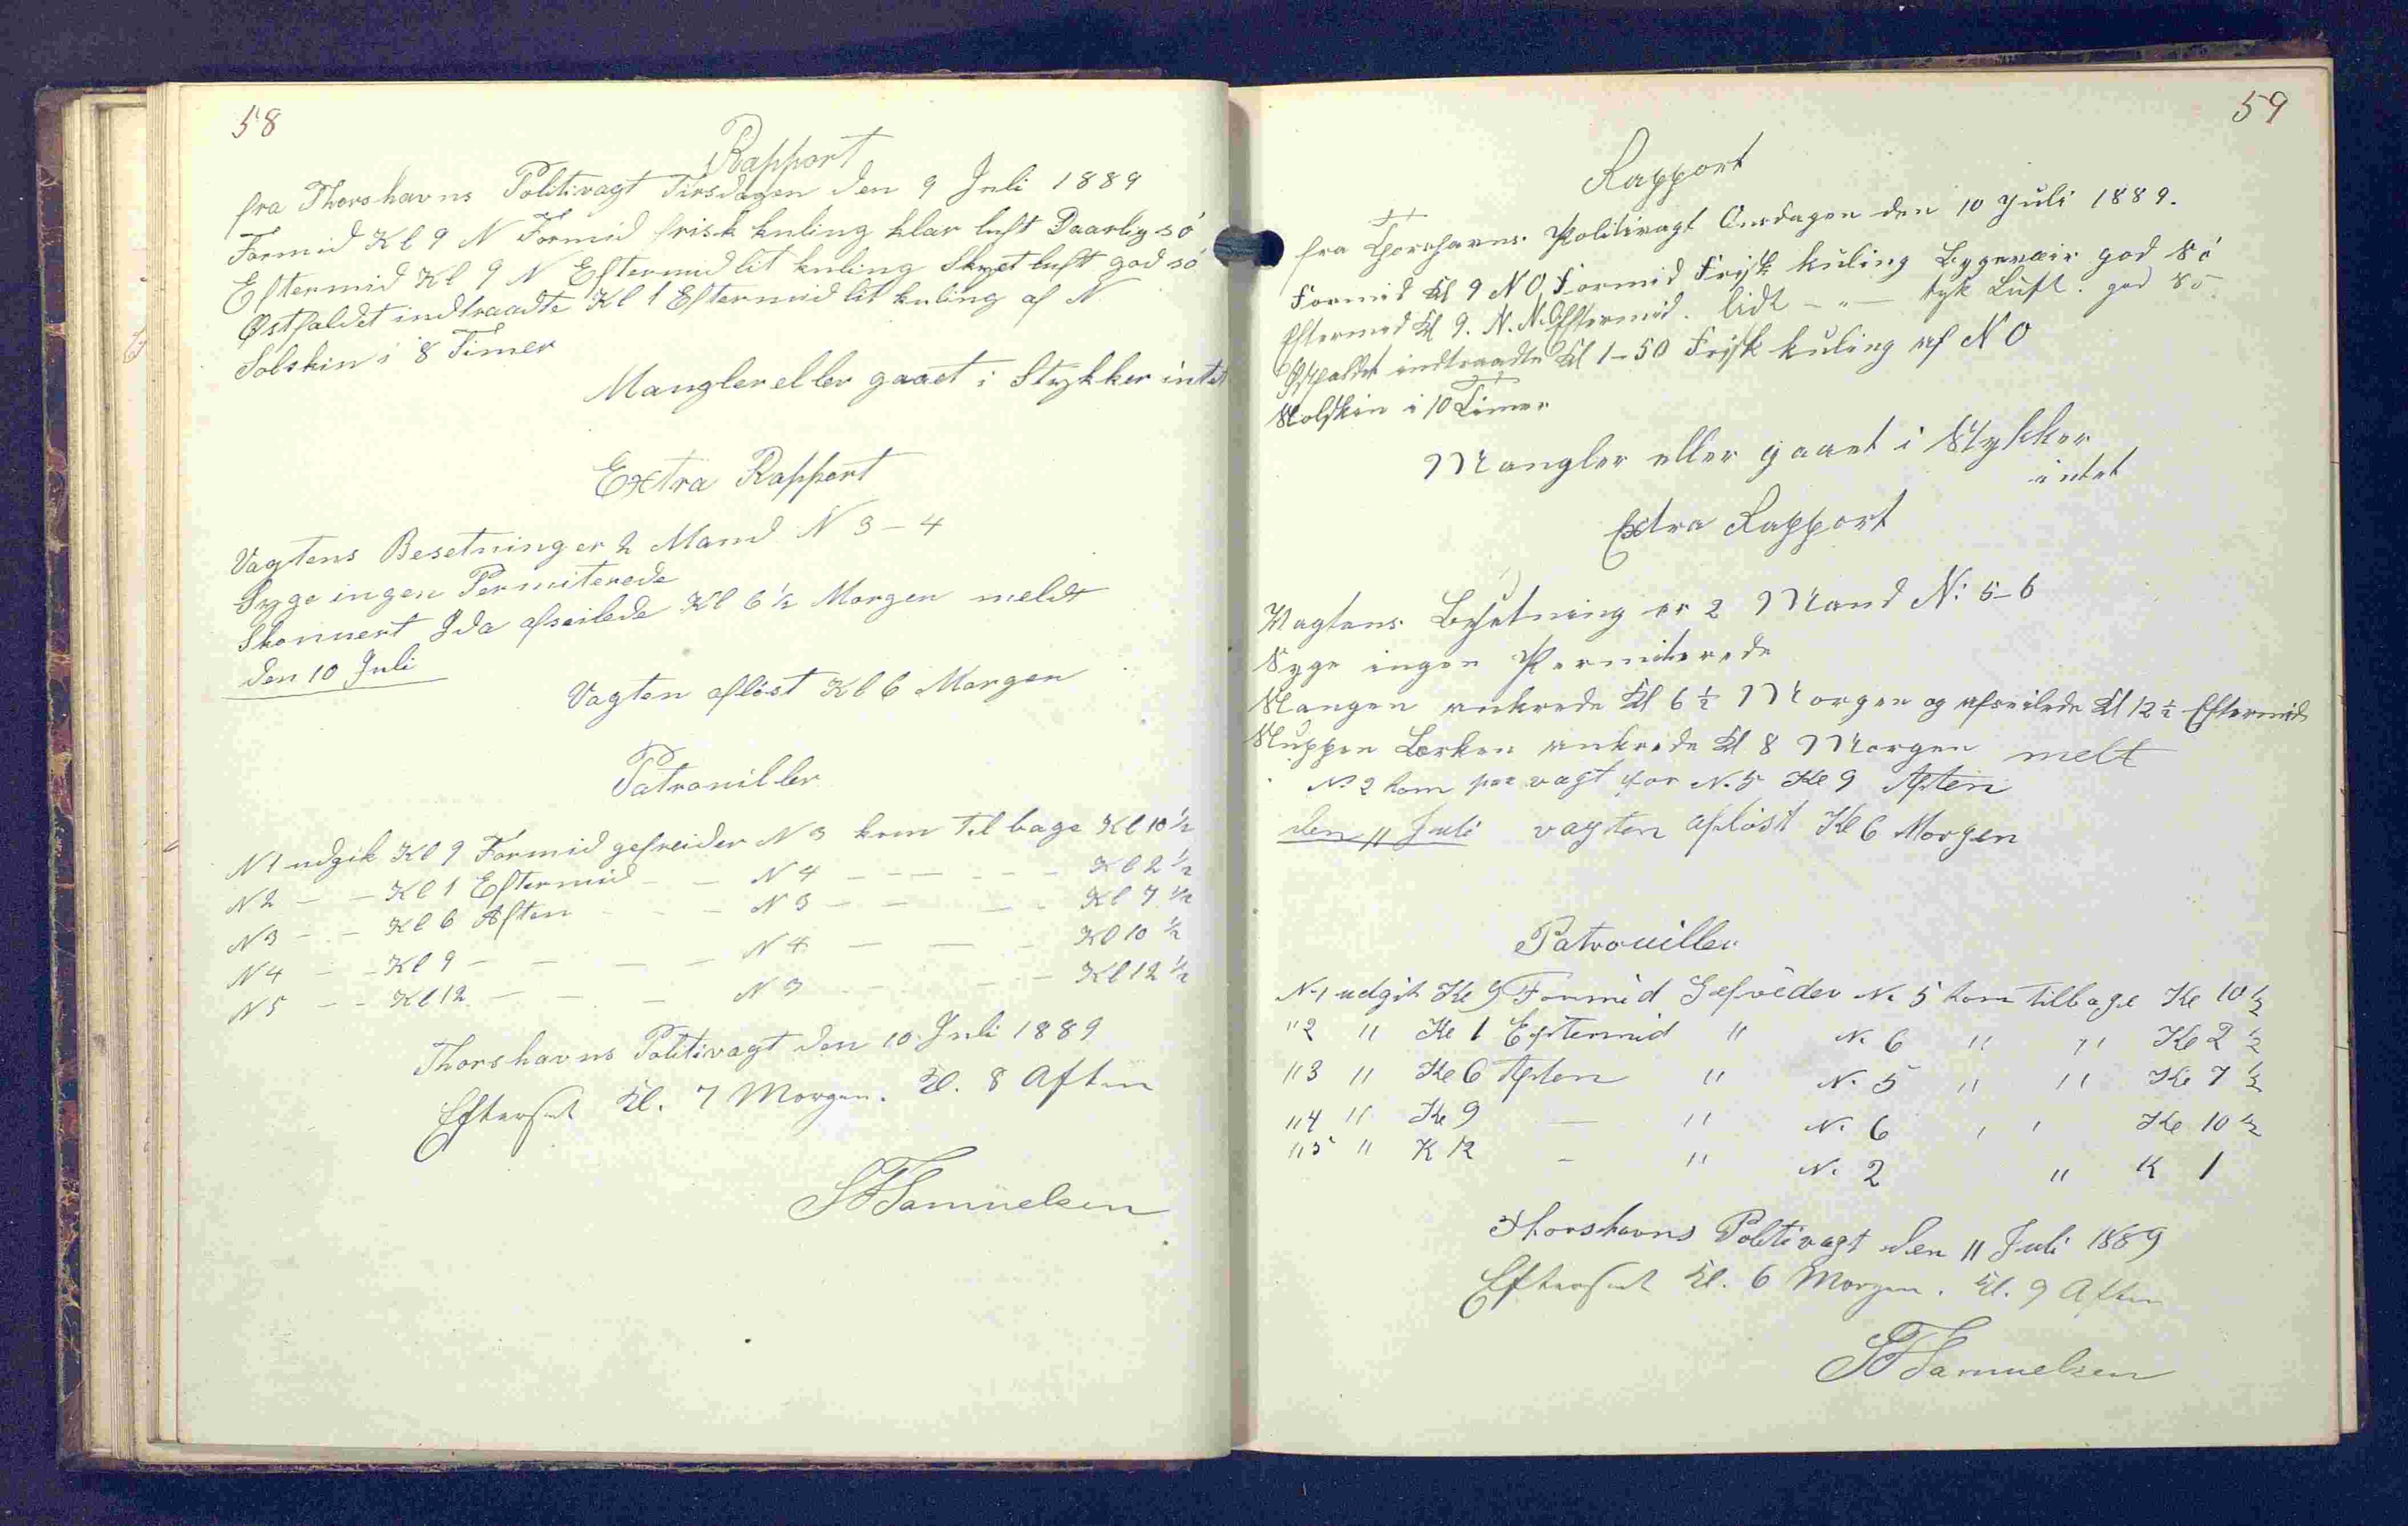 58
Rapport
fra Thorshavns Politivagt Tirsdagen den 9 Juli 1889
Formid Kl 9 N Formid frisk kuling klar luft Daarlig sö
Eftermid Kl 9 N Eftermid lit kuling Skyet luft god sö
Østfaldet indtraadte Kl 1 Eftermid lit kuling af N
Solskin i 8 Timer
Mangler eller gaaet i Stykker intet
Extra Rapport
Vagtens Besetning er 2 Mand N 3 - 4
Syge ingen Permiterede
Skonnert Ida afseilede Kl 6 1/2 Morgen meldt
den 10 Juli
Vagten aflöst Kl 6 Morgen
Patrouiller
N 1 udgik Kl 9 Formid gefreider N 3 kom Tilbage Kl 10 1/2
N 2 - - Kl 1 Eftermid - - N 4 - - - - - - Kl 2 1/2
N 3 - - Kl 6 Aften - - - N 3 - - - - Kl 7 1/2
N 4 - - Kl 9 - - - - N 4 - - - Kl 10 1/2
N 5 - - Kl 12 - - - N 3 - - - Kl 12 1/2
Thorshavns Politivagt den 10 Juli 1889
Efterset Kl. 7 Morgen. Kl. 8 Aften
SF Samuelsen
59
Rapport
fra Thorshavns Politivagt Onsdagen den 10 Juli 1889.
Formid Kl 9 NO Formid Frisk kuling Bygeveir god Sö
Eftermed Kl 9. N.N.O Eftermid. lidt - " - tyk Luft. god Sö.
Østfaldet indtraadte Kl 1-50 Frisk kuling af NO
Solskin i 10 Timer
Mangler eller gaaet i Stykker
intet
Extra Rapport
Vagtens Besetning er 2 Mand N: 5-6
Syge ingen Permiterede
Slangen ankrede Kl 6 1/2 Morgen og afseilede Kl 12 1/2 Eftermid
Sluppen Lerken ankrede Kl 8 Morgen melt
No 2 kom paa vagt for N. 5 Kl 9 Aften
den 11 Juli vagten aflöst Kl 6 Morgen
Patrouiller
N. 1 udgik Kl 9 Formid Gefreder N. 5 kom tilbage Kl 10 1/2
" 2 " Kl 1 Eftermid " N. 6 " " Kl 2 1/2
" 3 " Kl 6 Aften " N. 5 " " Kl 7 1/2
" 4 " Kl 9 - " N. 6 " " Kl 10 1/2
" 5 " K 12 - " N. 2 " K 1
Thorshavns Politivagt den 11 Juli 1889
Efterset Kl. 6 Morgen. Kl. 9 Aften
SF Samuelsen